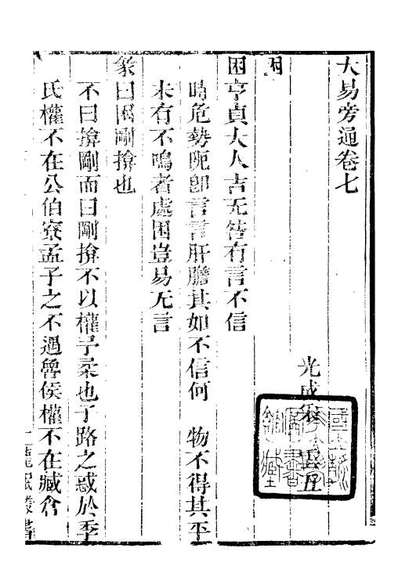 大易旁通卷七
光成
困
困亨貞大人吉无咎有言不信
時危勢阨卽言言肝膽其如不信何　物不得其平
未有不鳴者處困豈易无言
彖曰困剛揜也
不曰揜剛而曰剛揜不以權予柔也子路之惑於季
氏權不在公伯寮孟子之不遇魯侯權不在臧倉
叢書